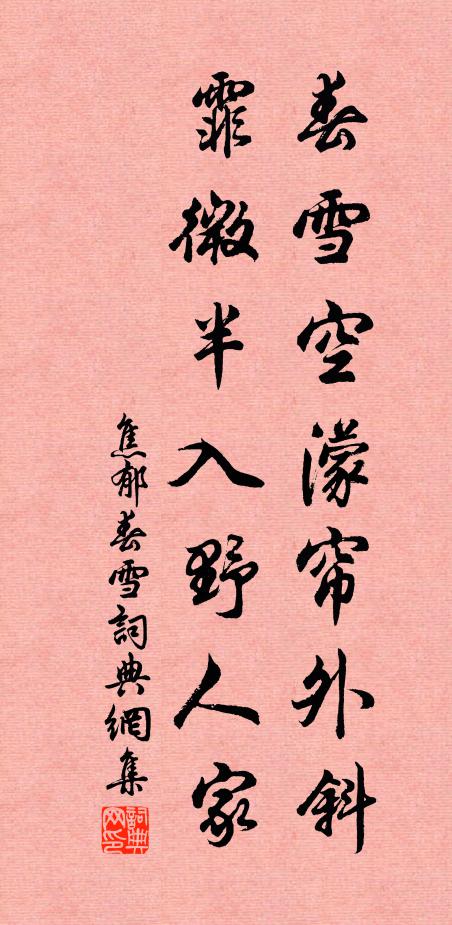 春雪空濛帘外斜
霏微半入野人家
焦郁春雪詞典網集
詞典网印